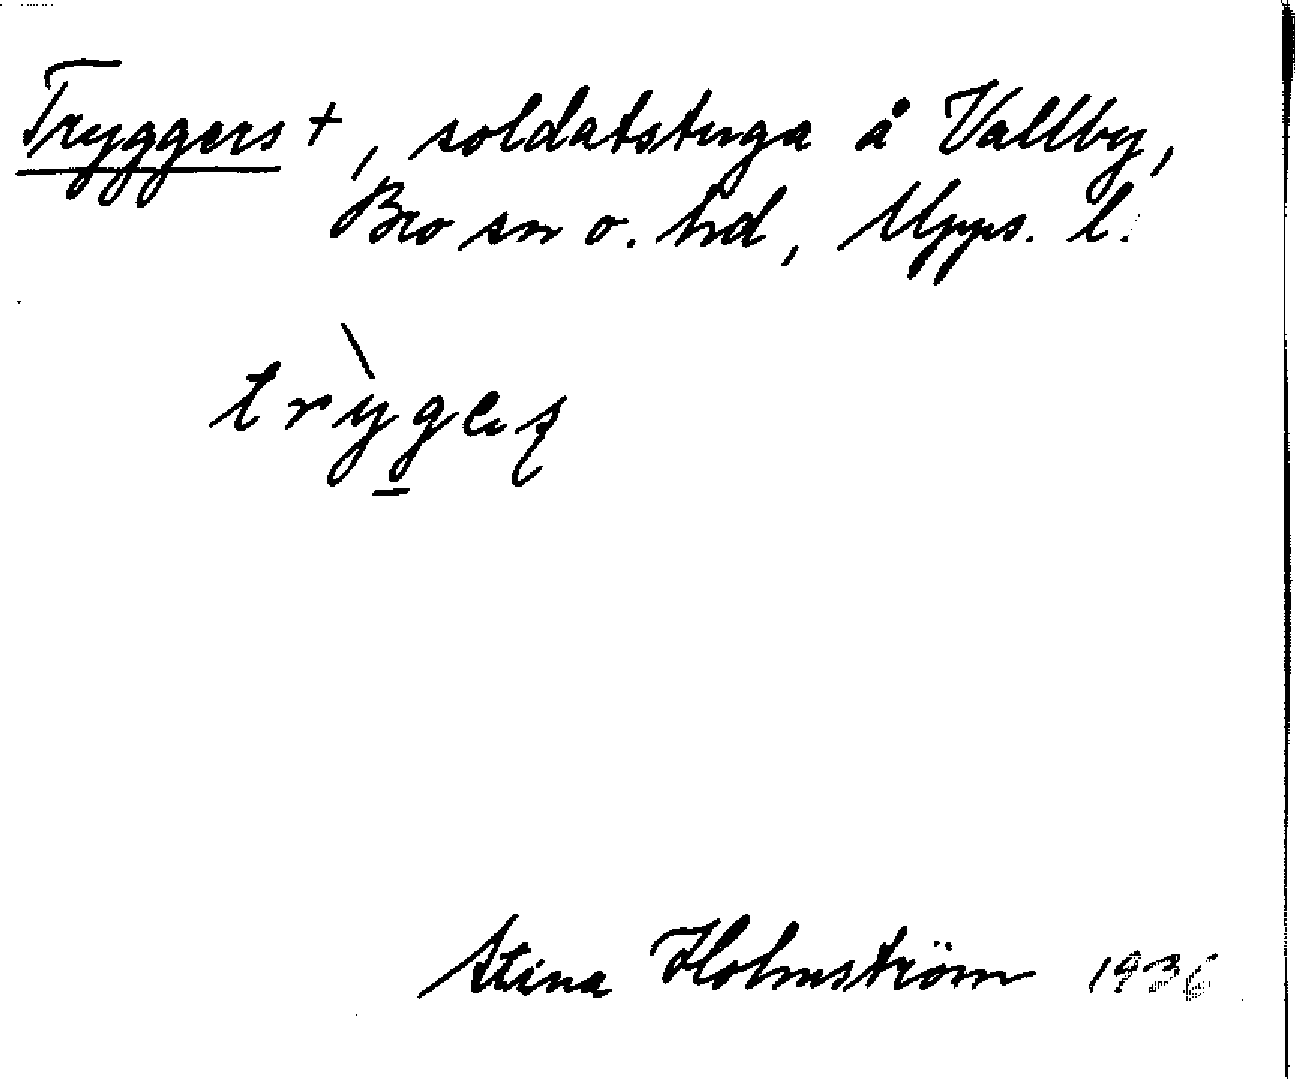 Tryggers +, soldatstuga å Vallby,
Bro sn o. hd, Upps. l.
Stina Holmström 1936